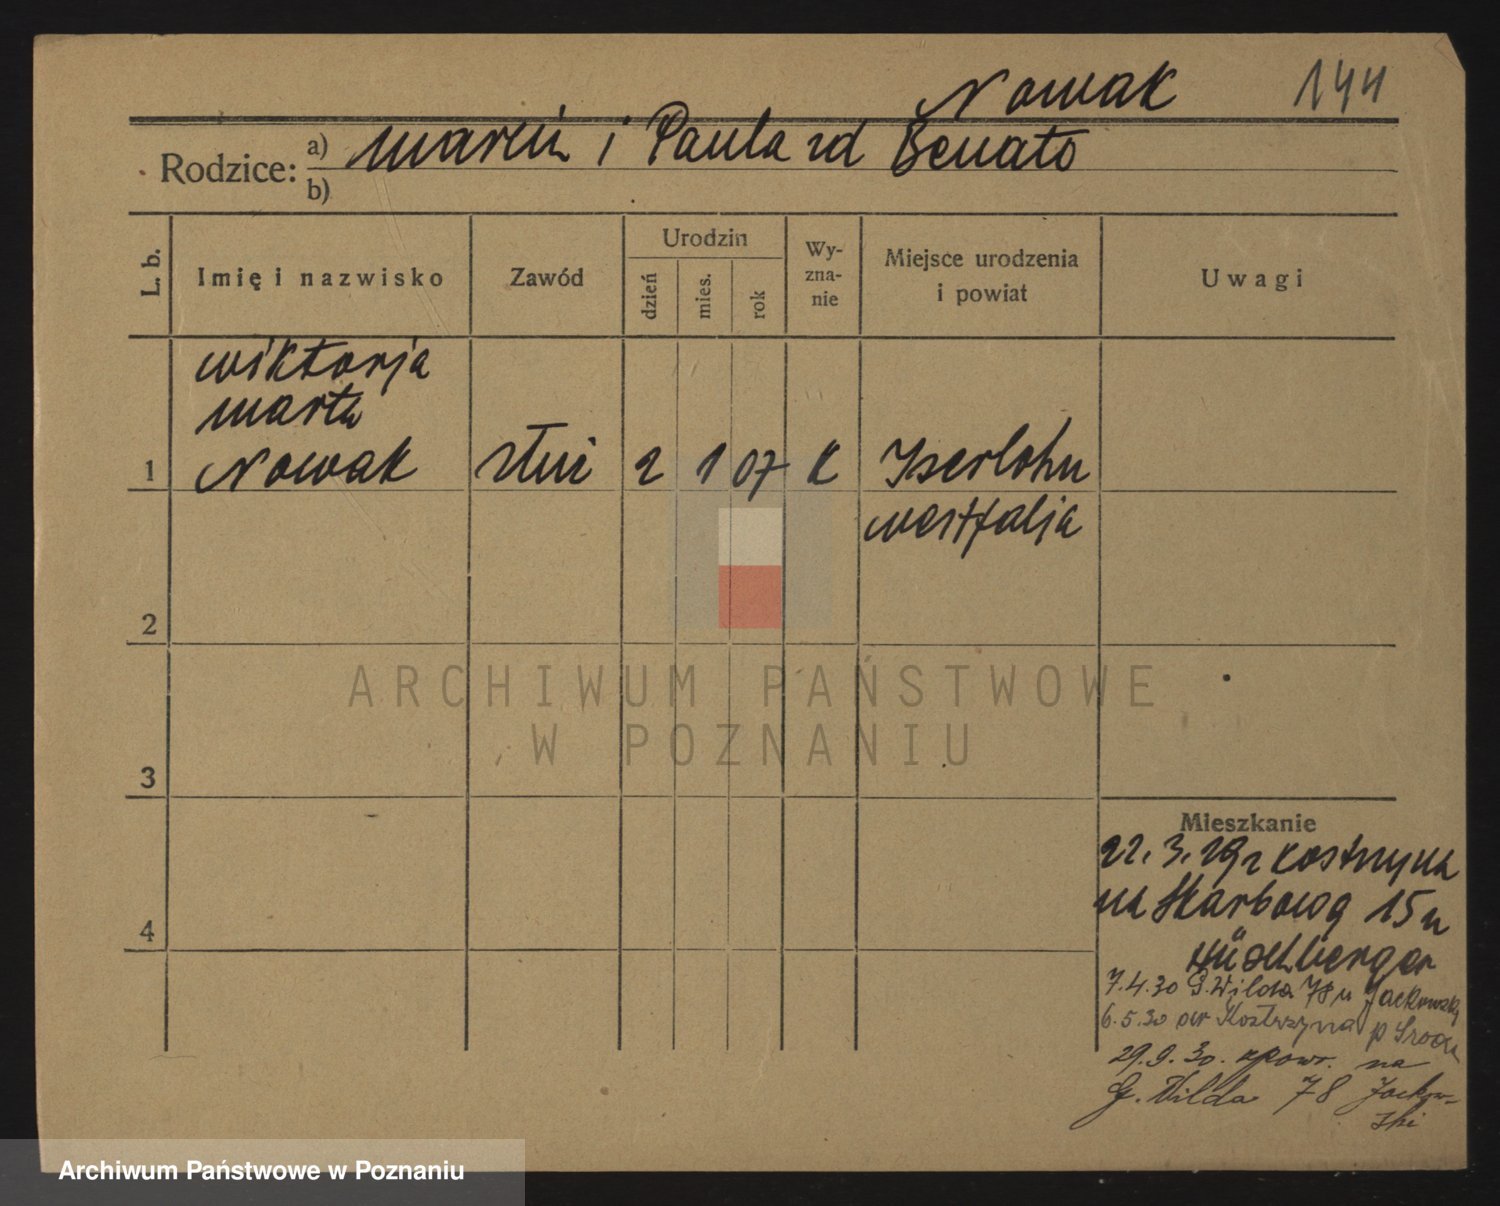 Nowak 144
Rodzice: a) Marcin i Paula zd Benato
b)
L. b. Imię i nazwisko Zawód Urodzin dzień mies. rok Wy-zna-nie Miejsce urodzenia i powiat Uwagi
Wiktorja
Marta
1 Nowak służ 2 1 07 K Iserlohn
Westfalja
2
ARCHIWUM PAŃSTWOWE
W POZNANIU
3
Mieszkanie
22.3.29r Kostrzyna
na Skarbową 15 u
4
7.4.30 G. Wilda 78 u Jackowski
6.5.30 Kostrzyna p Środa
29.9.30. powr. na
G. Wilda 78 Jackow-
ski
Archiwum Państwowe w Poznaniu